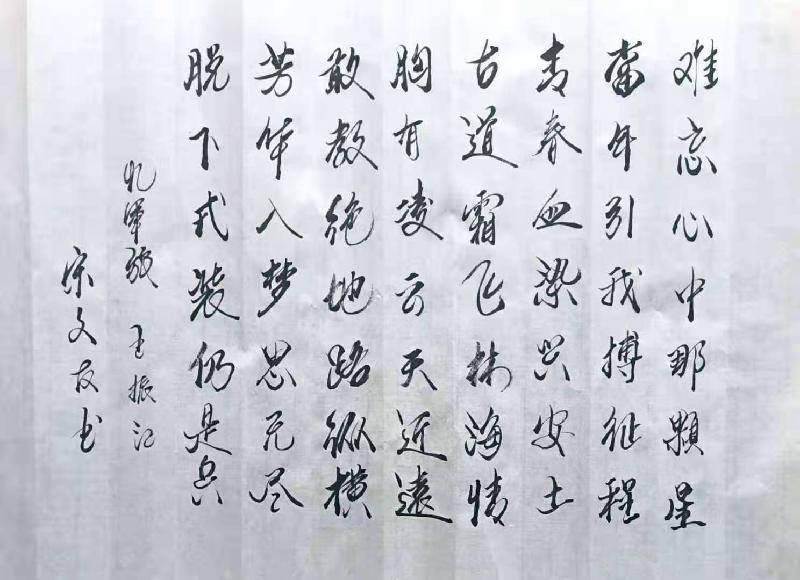 难忘心中那颗星
当年引我搏征程
青春血染兴安土
古道霜飞林海情
胸有凌云天近远
敢教绝地路纵横
芳华入梦思无尽
脱下戎装仍是兵
忆军旅 王振江
宋文友书